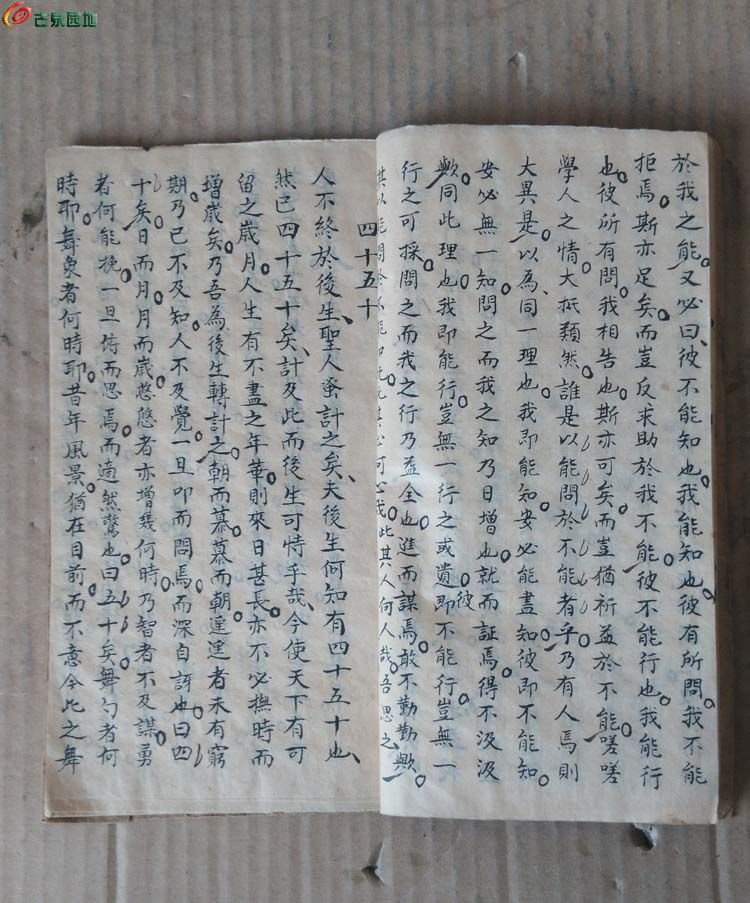 古泉园地
於我之能又必曰彼不能知也我能知也彼有所問我不能
拒焉斯亦足矣而豈反求助於我不能彼不能行也我能行
也彼所有問我相告也斯亦可矣而豈猶祈益於不能嗟嗟
學人之情大抵類然誰是以能問於不能者乎乃有人焉則
大異是以為同一理也我即能知安必能盡知彼即不能知
安必無一知問之而我之知乃日增也就而証焉得不汲汲
歟同此理也我即能行豈無一行之或遺彼即不能行豈無一
行之可採問之而我之行乃益全也進而謀焉敢不勤勤歟
其以能問於不能如此此其人何人哉吾思之
四十五十
人不終於後生聖人蚤計之矣夫後生何知有四十五十也
然已四十五十矣計及此而後生可恃乎哉今使天下有可
留之歲月人生有不盡之年華則來日甚長亦不必撫時而
增歲矣乃吾為後生轉計之朝而暮暮而朝遥遥者未有窮
期乃已不及知人不及覺一旦叩而問焉而深自訝也曰四
十矣日而月月而歲悠悠者亦增幾何時乃智者不及謀勇
者何能挽一旦俯而思焉而適然驚也曰五十矣舞勺者何
時耶舞象者何時耶昔年風景猶在目前而不意今此之舞